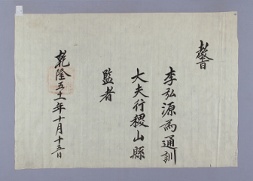 敎旨
李弘源爲通訓
大夫行稷山縣
監者
乾隆五十一年十月十五日